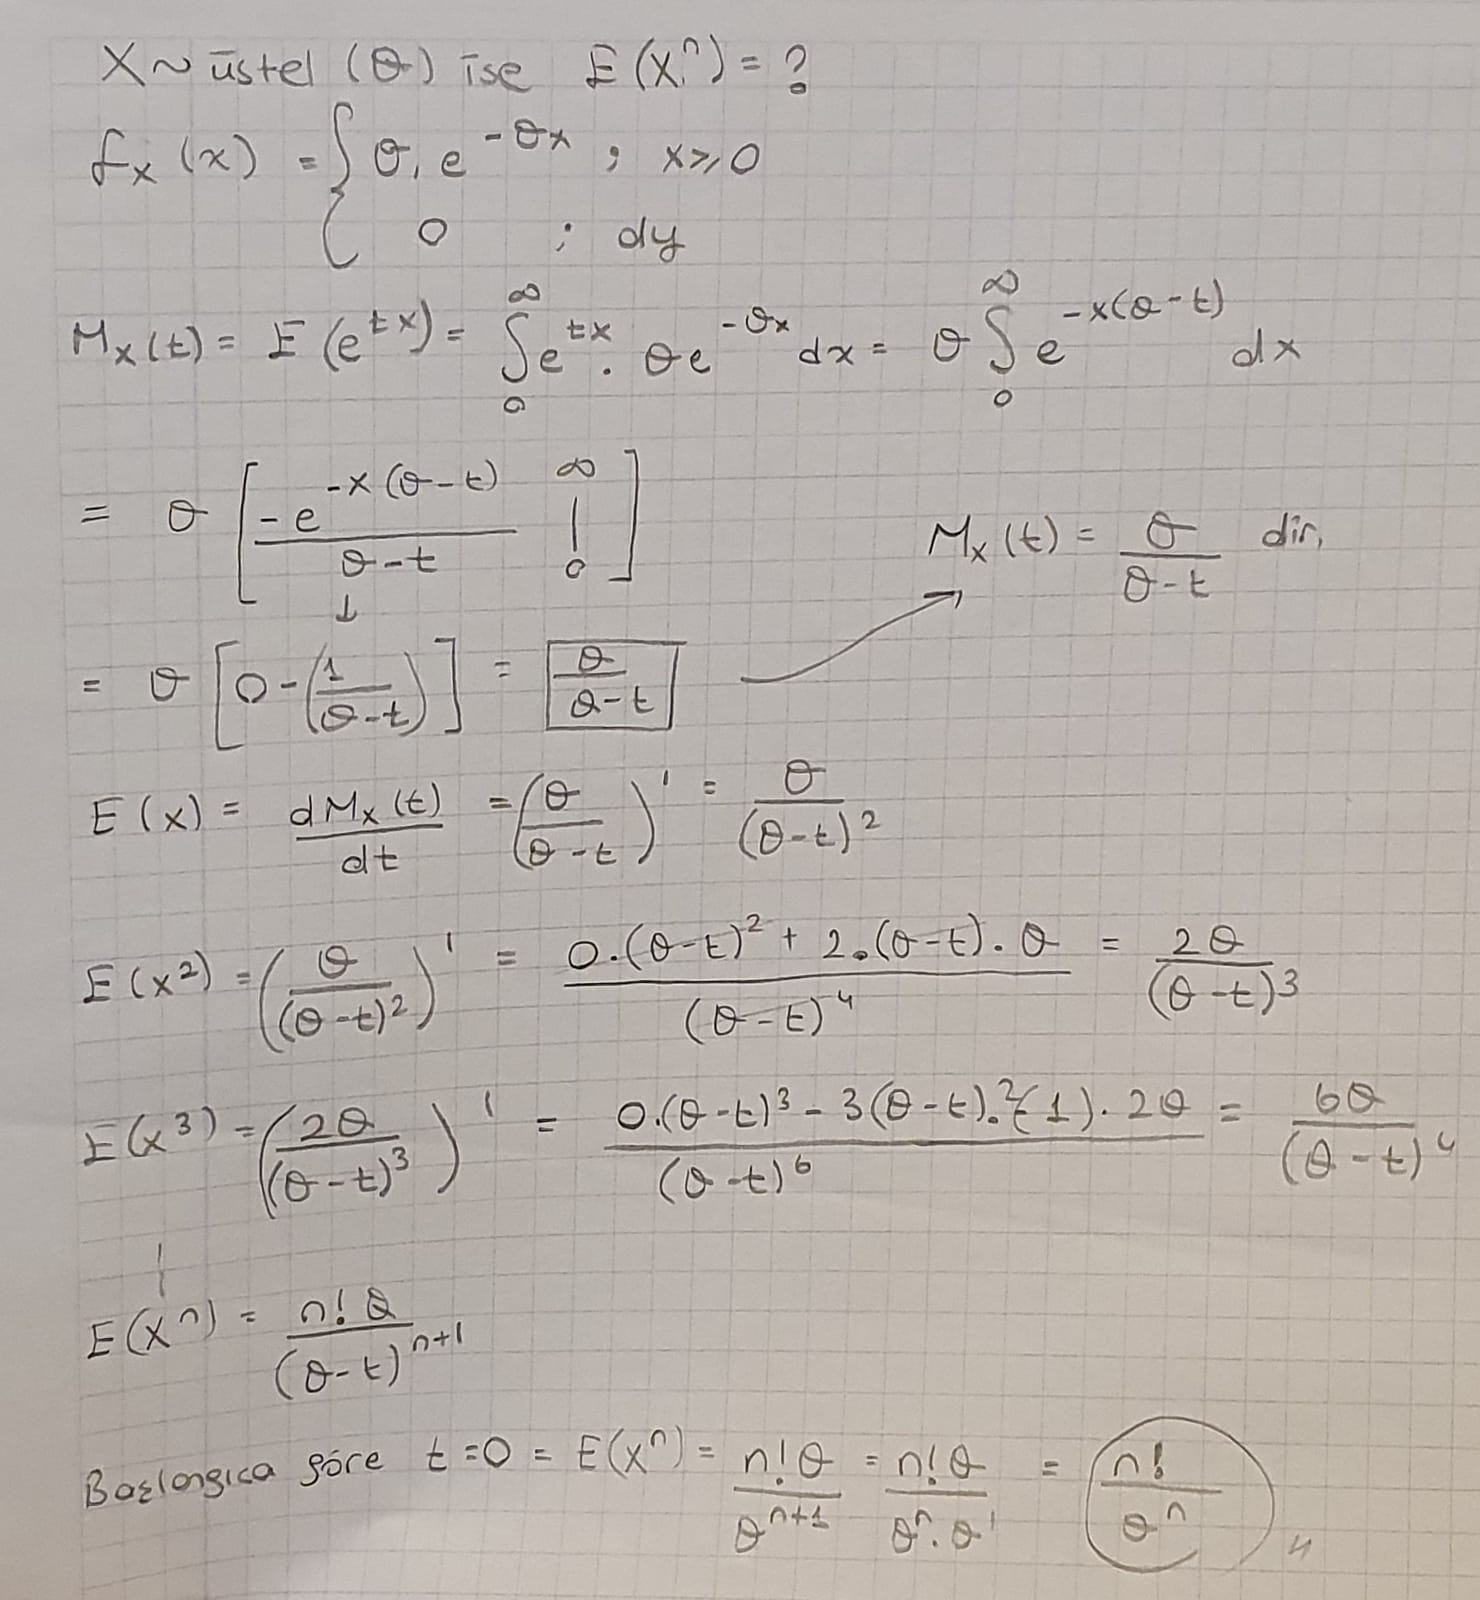 X ~ üstel (θ) ise E(Xⁿ) = ?
fₓ(x) = { θ. e^(-θx) ; x ≥ 0
0 ; dy
Mₓ(t) = E(e^(tx)) = ∫₀^∞ e^(tx) . θe^(-θx) dx = θ ∫₀^∞ e^(-x(θ-t)) dx
= θ [ -e^(-x(θ-t)) / (θ-t) |₀^∞ ]
↓
Mₓ(t) = θ/(θ-t) dir.
= θ [ 0 - (1/(θ-t)) ] = θ/(θ-t)
E(x) = dMₓ(t)/dt = (θ/(θ-t))' = θ/(θ-t)²
E(x²) = (θ/(θ-t)²)' = (0.(θ-t)² + 2.(θ-t).θ)/(θ-t)⁴ = 2θ/(θ-t)³
E(x³) = (2θ/(θ-t)³)' = (0.(θ-t)³ - 3(θ-t).²(-1).2θ)/(θ-t)⁶ = 6θ/(θ-t)⁴
E(Xⁿ) = n! θ/(θ-t)^(n+1)
Başlangıca göre t=0 = E(xⁿ) = n!θ/θ^(n+1) = n!θ/(θⁿ.θ¹) = n!/θⁿ //